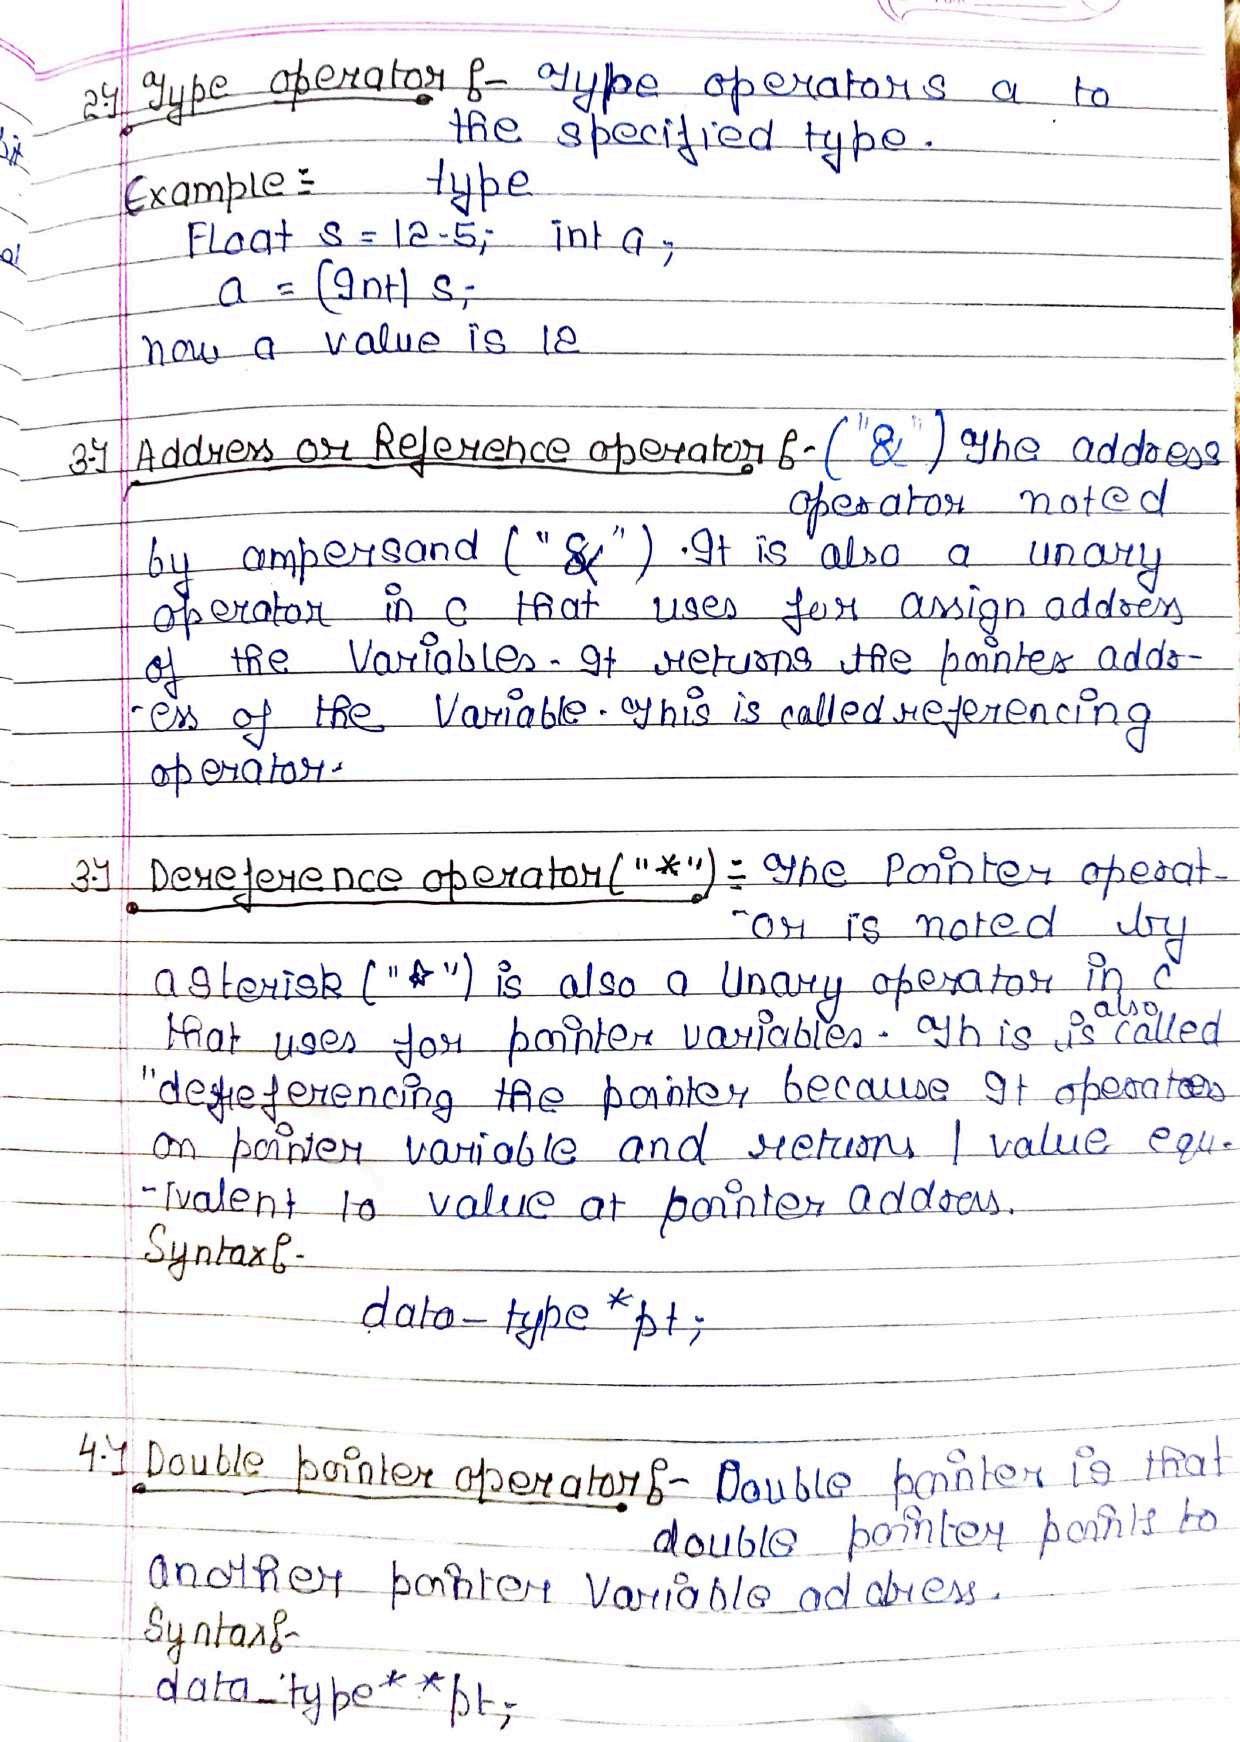 2.) Type operator :- Type operators a to
the specified type.
Example := type
Float s = 12.5; int a;
a = (Int) s;
now a value is 12
3.) Address or Reference operator :- ("&") The address
operator noted
by ampersand ("&"). It is also a unary
operator in c that uses for assign address
of the Variables. It returns the pointer addr-
-ess of the Variable. This is called referencing
operator.
3.) Dereference operator ("*") := The Pointer operat-
-or is noted by
asterisk ("*") is also a Unary operator in c
that uses for pointer variables. This is also called
"dereferencing the pointer because It operators
on pointer variable and returns l value equ-
-ivalent to value at pointer address.
Syntax :-
data-type *pt;
4.) Double pointer operator :- Double pointer is that
double pointer points to
another pointer Variable address.
Syntax :-
data-type **pt;